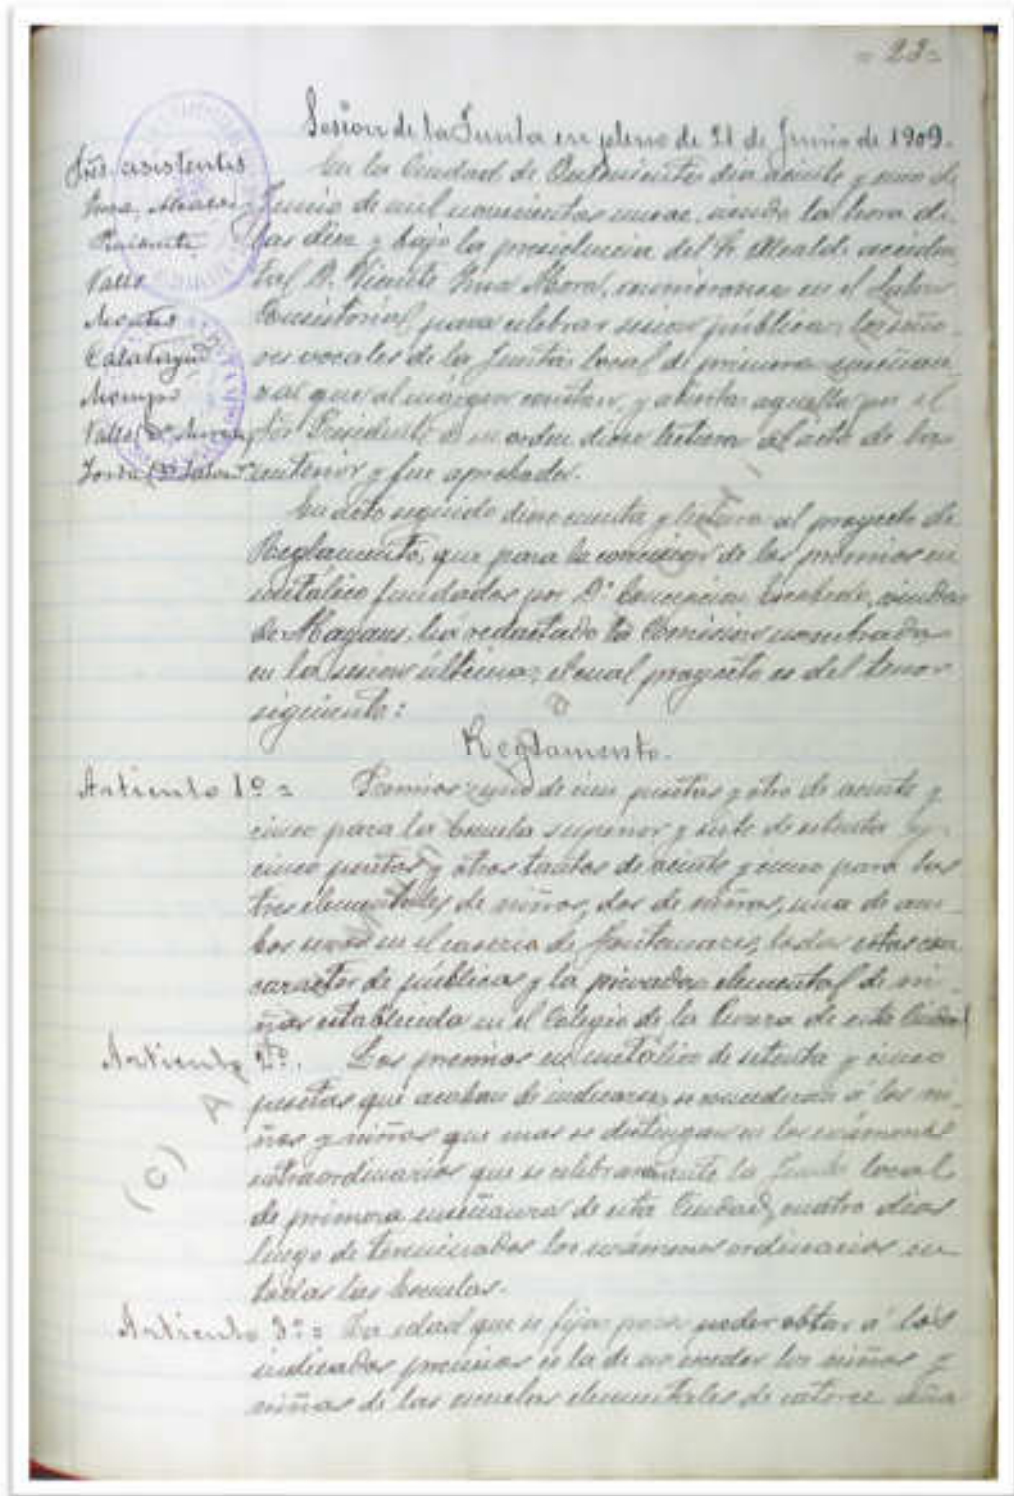 = 23 =
Sesion de la Junta en pleno de 21 de Junio de 1909.
Sres. asistentes
En la Ciudad de Onteniente dia veinte y uno de
Junio de mil novecientos nueve, siendo la hora de
las diez y bajo la presidencia del Sr. Alcalde acciden
Valls
tal D. Vicente Mora, reunieronse en el Salon
Montes
Consistorial, para celebrar sesion pública, los seño-
Calatayud
res vocales de la Junta local de primera enseñan-
Mompó
za, que al márgen constan, y abierta aquella por el
Valls
Sor Presidente de su orden diose lectura al acta de la
anterior y fue aprobada.
En acto seguido diose cuenta y lectura al proyecto de
Reglamento, que para la concesion de los premios en
metálico fundados por Dª Concepcion Escobedo, viuda
de Mayans, há redactado la Comision nombrada
en la sesion última; el cual proyecto es del tenor
siguiente:
Reglamento.
Articulo 1º = Premios: uno de cien pesetas y otro de veinte y
cinco para la Escuela superior y siete de setenta y
cinco pesetas y otros tantos de veinte y cinco para las
tres elementales de niños, dos de niñas, una de am-
bos sexos en el caserio de Fontanares, todas estas con
caracter de públicas y la privada elemental de ni-
ños establecida en el Colegio de la de esta Ciudad
Articulo 2º. Los premios en metálico de setenta y cinco
pesetas que acaban de indicarse, se concederán á los ni-
ños y niñas que mas se distingan en los exámenes
extraordinarios que se celebrarán ante la Junta local
de primera enseñanza de esta Ciudad, cuatro dias
luego de terminados los exámenes ordinarios en
todas las Escuelas.
Articulo 3º = La edad que se fija para poder obtar á los
indicados premios es la de no exceder los niños y
niñas de las escuelas elementales de catorce años
(C)